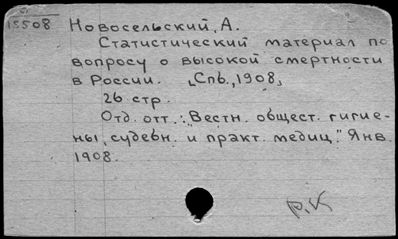 15508 Новосельский, А.
Статистический материал по
вопросу о высокой смертности
в России. „Спб., 1908„
26 стр.
Отд. отт.: "Вестн. общест. гигие-
ны, судебн. и практ. медиц." Янв.
1908.